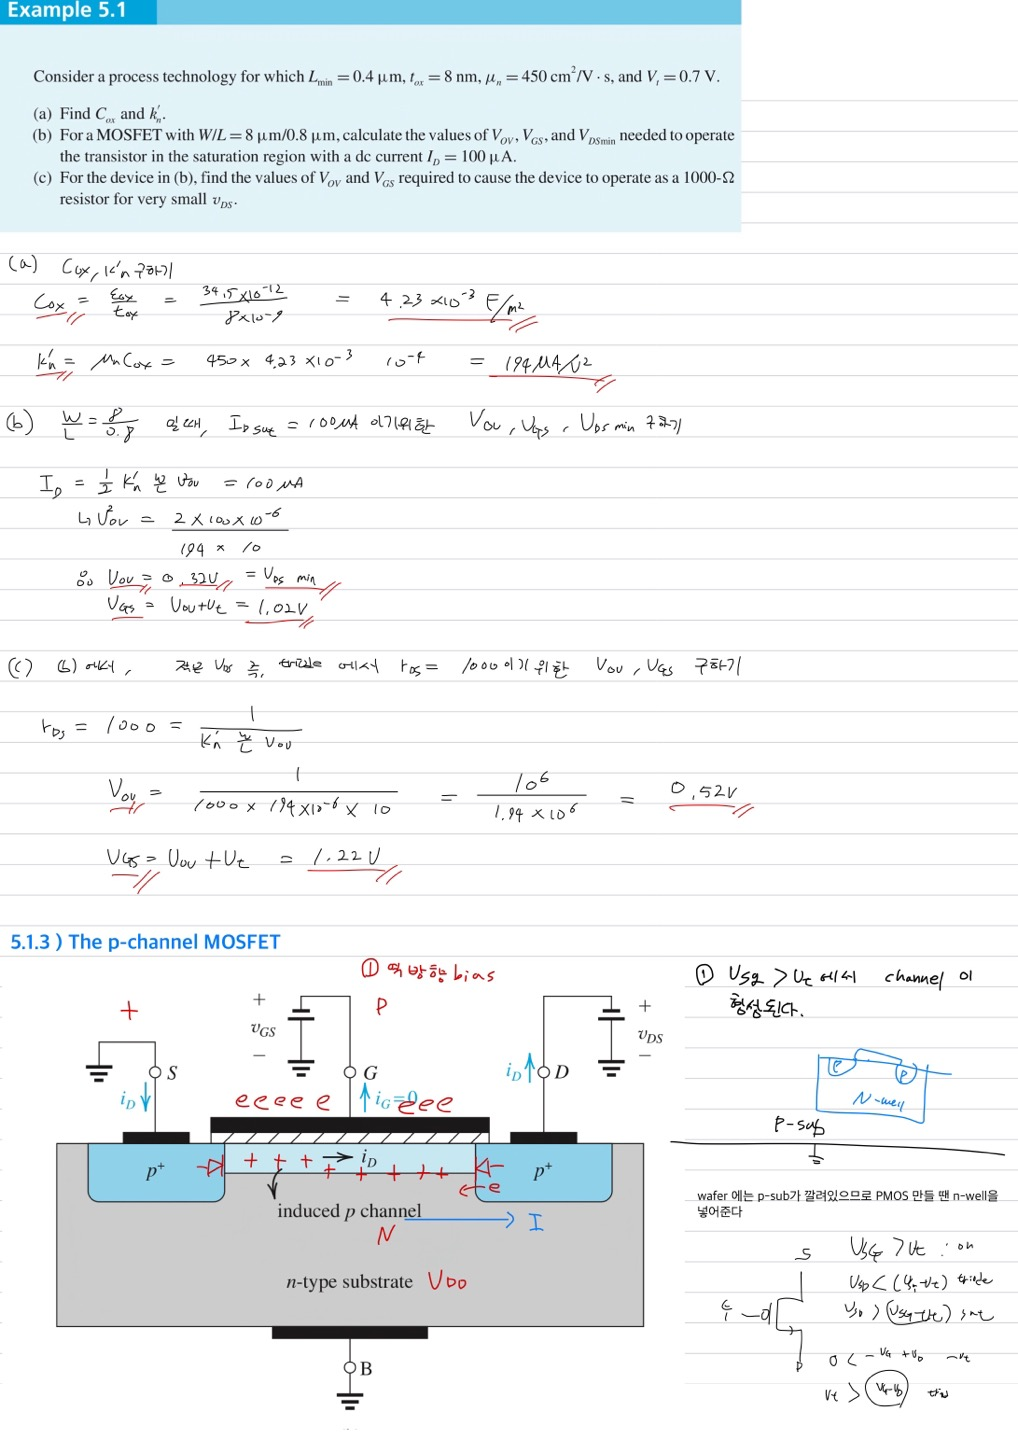 Example 5.1
Consider a process technology for which L_min = 0.4 μm, t_ox = 8 nm, μ_n = 450 cm²/V · s, and V_t = 0.7 V.
(a) Find C_ox and k′_n.
(b) For a MOSFET with W/L = 8 μm/0.8 μm, calculate the values of V_OV, V_GS, and V_DSmin needed to operate
the transistor in the saturation region with a dc current I_D = 100 μA.
(c) For the device in (b), find the values of V_OV and V_GS required to cause the device to operate as a 1000-Ω
resistor for very small v_DS.
(a) Cox, k'n 구하기
Cox = εox/tox = 34.5×10^-12 / 8×10^-9 = 4.23 ×10^-3 F/m²
k'n = μnCox = 450 × 4.23 ×10^-3 10^-4 = 194 μA/V²
(b) W/L = 8/0.8 일때, ID sat = 100μA 이기위한 Vov, VGS, VDS min 구하기
ID = 1/2 k'n W/L V²ov = 100 μA
↳ V²ov = 2×100×10^-6 / 194 × 10
∴ Vov = 0.32V = VDS min
VGS = Vov+Vt = 1.02V
(c) (b) 에서, 작은 VDS 즉, triode 에서 rDS = 1000 이기 위한 Vov, VGS 구하기
rDS = 1000 = 1 / k'n W/L Vov
Vov = 1 / 1000 × 194×10^-6 × 10 = 10^6 / 1.94 × 10^6 = 0.52V
VGS = Vov + Vt = 1.22V
5.1.3 ) The p-channel MOSFET
① 역방향 bias
① VSG > Vt 에서 channel 이
형성된다.
+
+
v_GS
−
P
+
v_DS
−
S
G
D
i_D
i_G=0
i_D
eeeee
eee
p⁺
+ + +
i_D
+ + + + +
p⁺
e
induced p channel
I
N
n-type substrate
VDD
B
P
P
N-well
P-sub
wafer 에는 p-sub가 깔려있으므로 PMOS 만들 땐 n-well을
넣어준다
S
VSG > Vt : on
VSD < (VSG-Vt) triode
VSD > (VSG-Vt) sat
D
0 < -VG + VD -Vt
Vt >